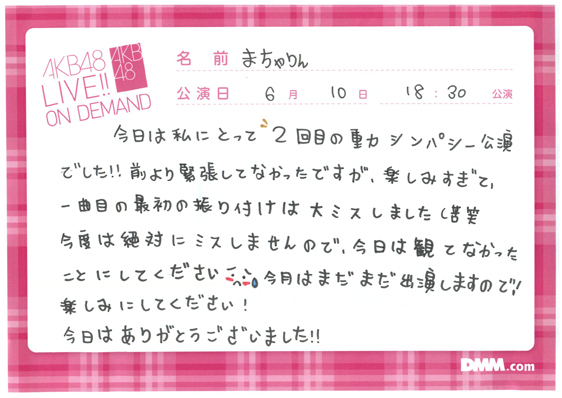 AKB48
LIVE!!
ON DEMAND
AKB
48
名前 まちゃりん
公演日 6月 10日 18:30 公演
今日は私にとって2回目の重力シンパシー公演
でした!!前より緊張してなかったですが、楽しみすぎて、
一曲目の最初の振り付けは大ミスしました(苦笑
今度は絶対にミスしませんので、今日は観てなかった
ことにしてください 今月はまだまだ出演しますので!
楽しみにしてください!
今日はありがとうございました!!
DMM.com